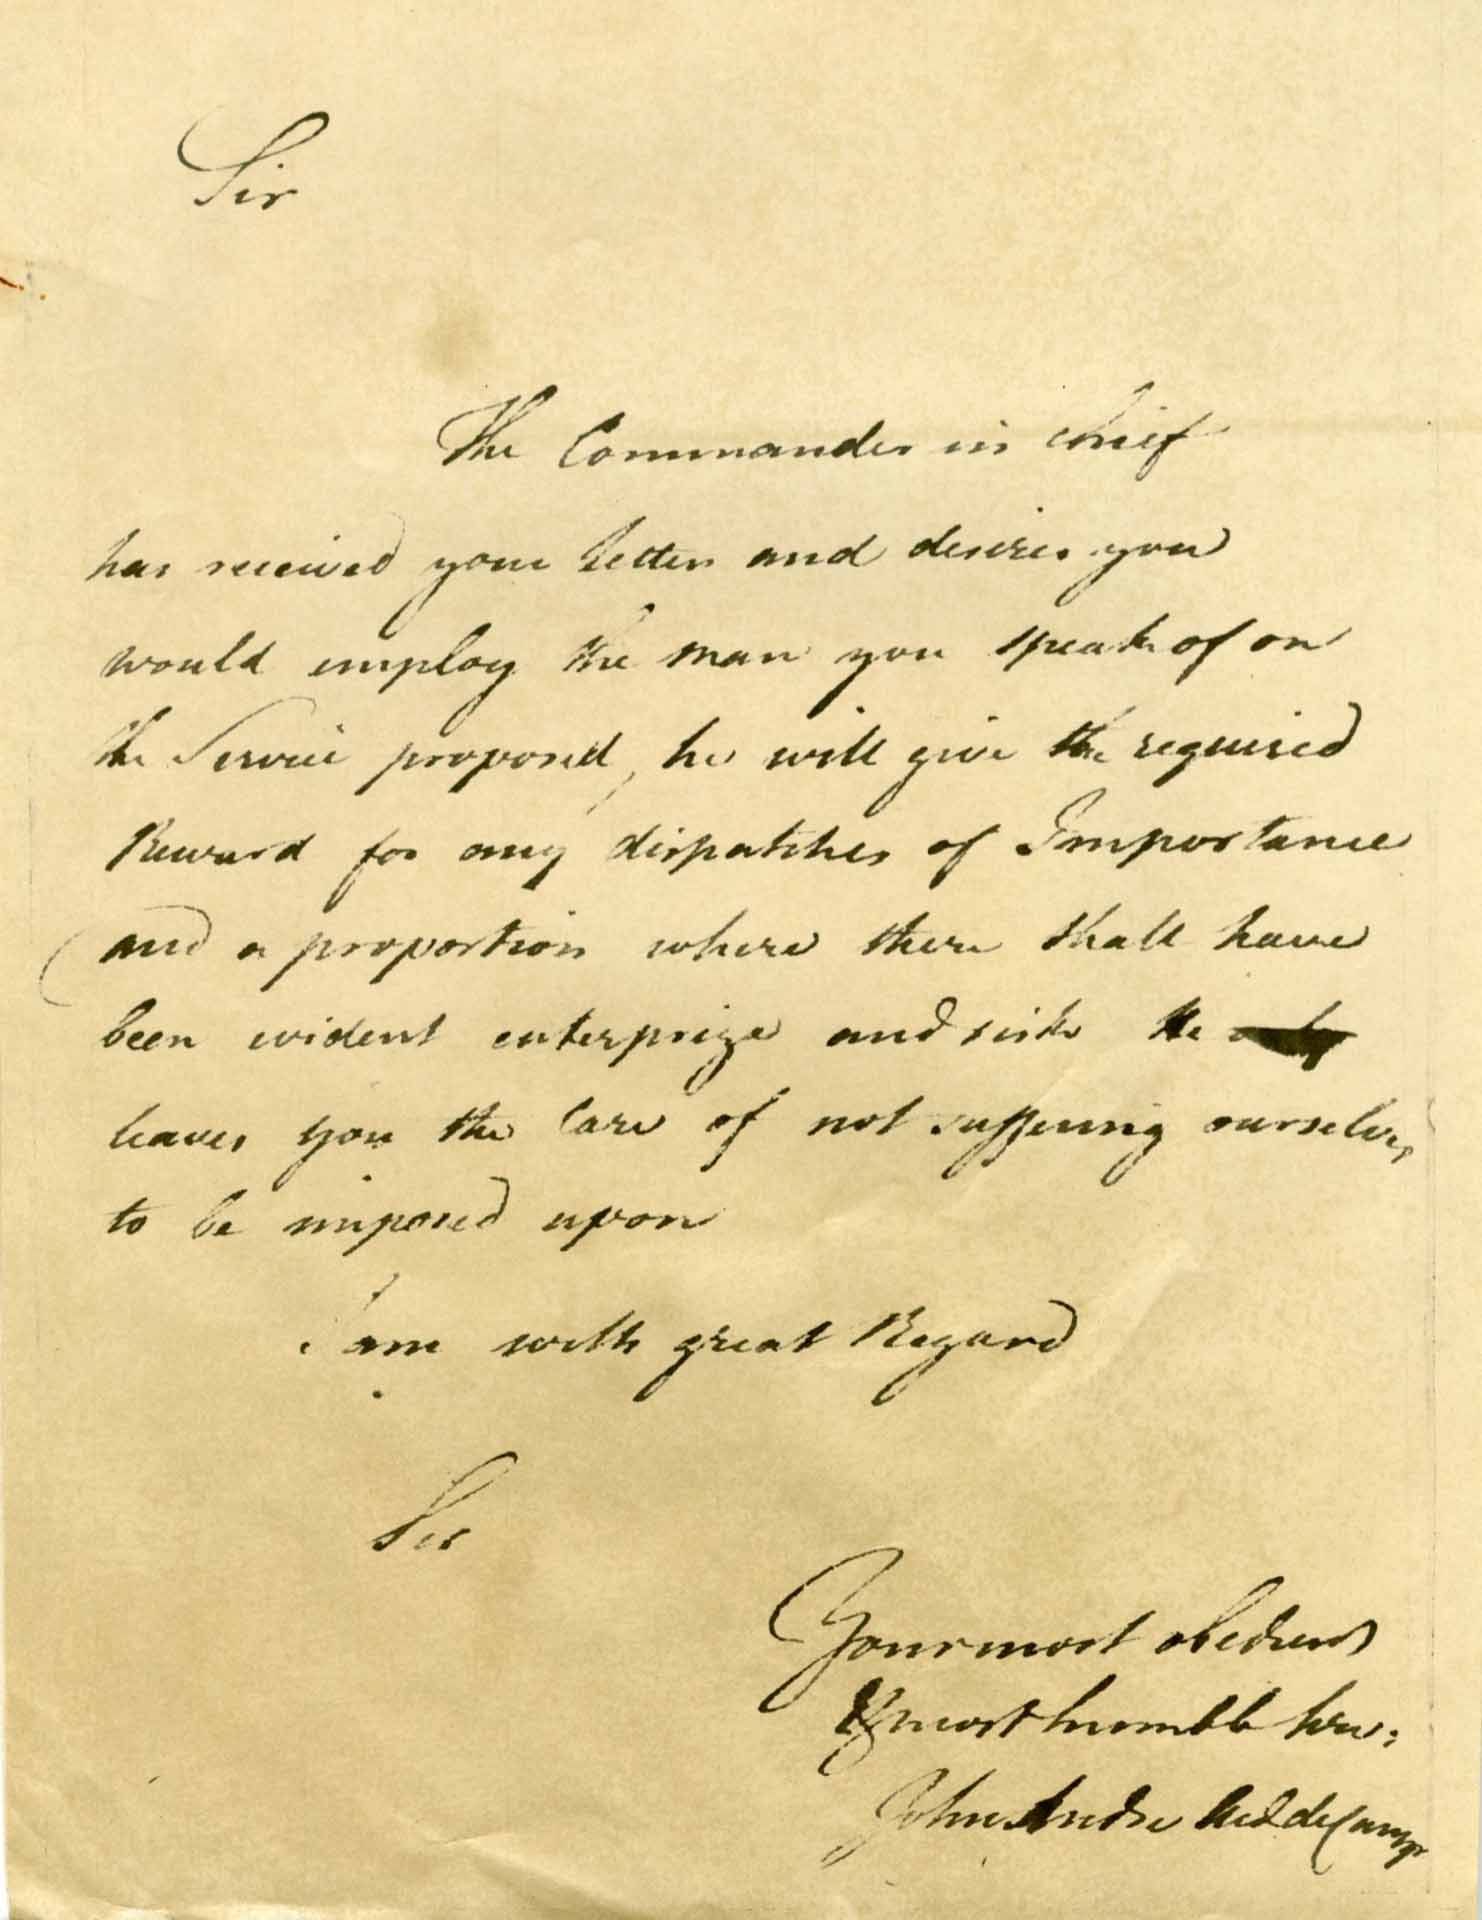 Sir
The Commander in chief
has received your letter and desires you
would employ the man you speak of on
the Service proposed, he will give the required
Reward for any dispatches of Importance
and a proportion where there shall have
been evident enterprize and risk He
leaves you the Care of not suffering ourselves
to be imposed upon
I am with great Regard
Sir
Your most obedient
& most humble Ser:
John Andre Aid de Camp